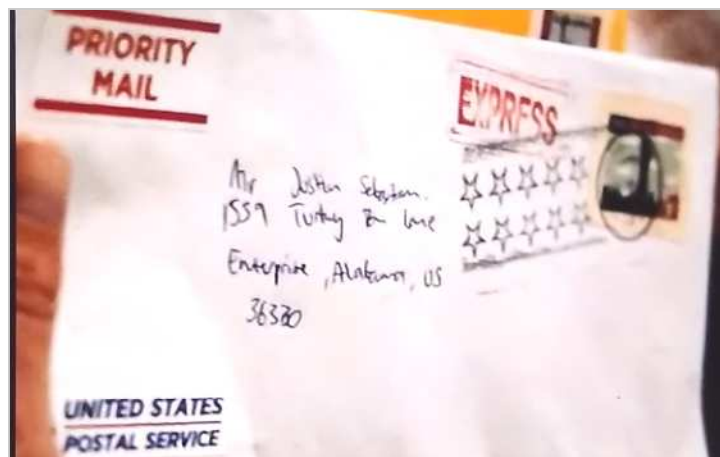 PRIORITY
MAIL
EXPRESS
Mr Justin
1559 Turkey Lane
Enterprise, Alabama, US
36330
UNITED STATES
POSTAL SERVICE